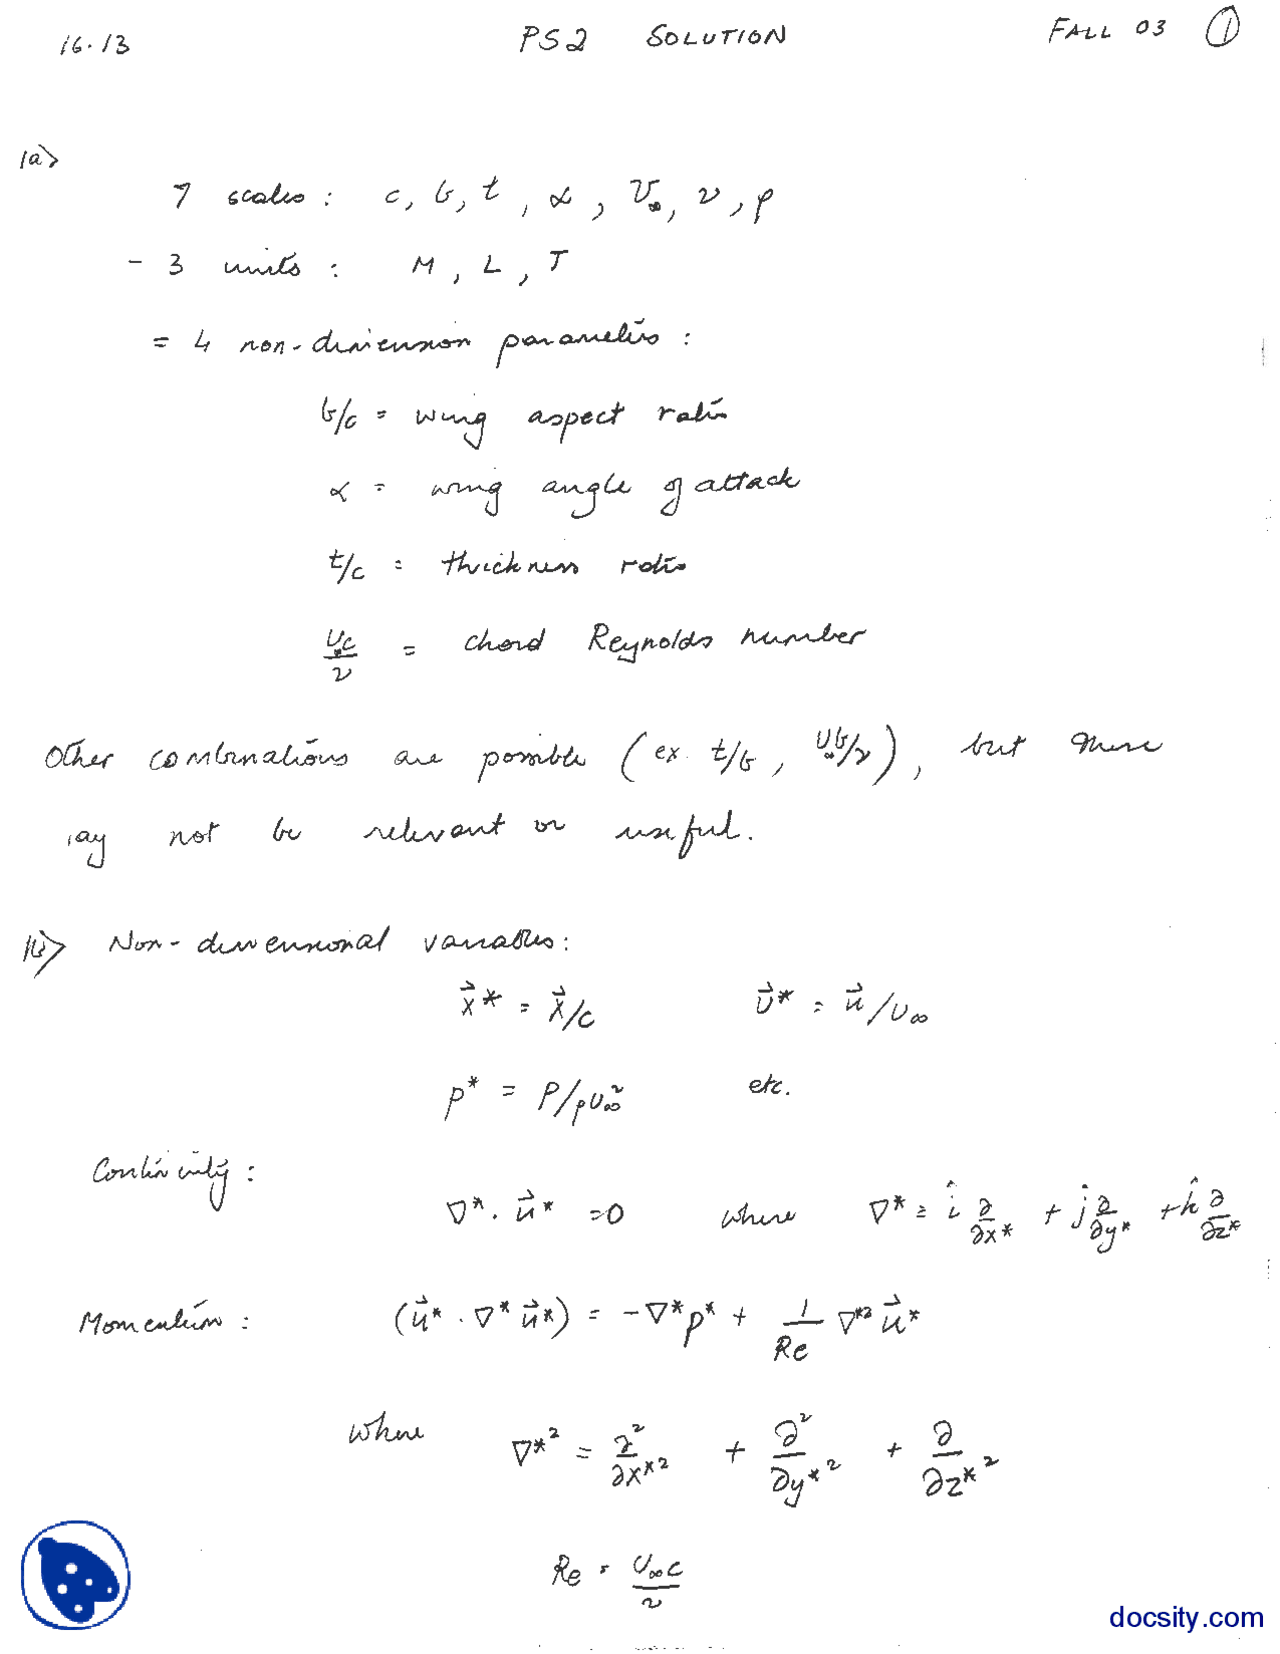 16.13 PS2 SOLUTION FALL 03 ①
1a>
7 scales : c, b, t, α, U∞, ν, ρ
- 3 units : M, L, T
= 4 non-dimension parameters :
b/c = wing aspect ratio
α = wing angle of attack
t/c = thickness ratio
U∞c/ν = chord Reynolds number
Other combinations are possible (ex. t/b, U∞b/ν), but these
ay not be relevant or useful.
1b> Non-dimensional variables:
x⃗* = x⃗/c u⃗* = u⃗/U∞
p* = P/ρU∞² etc.
Continuity :
∇*. u⃗* =0 where ∇* ≡ î ∂/∂x* + ĵ ∂/∂y* + k̂ ∂/∂z*
Momentum : (u⃗* . ∇* u⃗*) = -∇*p* + 1/Re ∇*² u⃗*
where ∇*² = ∂²/∂x*² + ∂²/∂y*² + ∂/∂z*²
Re = U∞c/ν
docsity.com